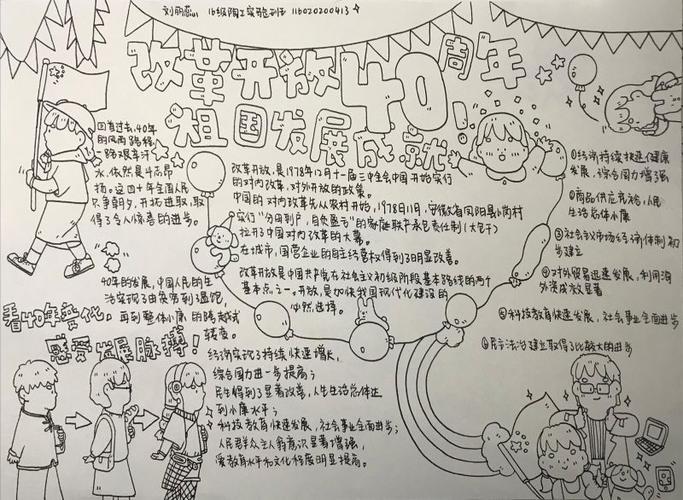 刘丽燕 16级陶工实验班 116020200413
改革开放40周年
祖国发展成就
回首过去,40年
的风雨路程
一路艰辛汗
水,依然是斗志昂
扬。这四十年全国人民
只争朝夕,开拓进取,取
得了令人惊喜的进步。
改革开放,是1978年12月十一届三中全会中国开始实行
的对内改革,对外开放的政策。
中国的对内改革先从农村开始,1978年11月,安徽省凤阳县小岗村
实行“分田到户,自负盈亏”的家庭联产承包责任制(大包干)
拉开了中国对内改革的大幕。
在城市,国营企业的自主经营权得到了明显改善。
改革开放是中国共产党在社会主义初级阶段基本路线的两个
基本点之一。开放,是加快我国现代化建设的
必然选择。
①经济持续快速健康
发展,综合国力增强
②商品供应充裕,人民
生活总体小康
③社会主义市场经济体制初
步建立
④对外贸易迅速发展,利用海
外资成效显著
⑤科技教育快速发展,社会事业全面进步
⑥民主法治建立取得了比较大的进步
40年的发展,中国人民的生
活实现了由贫穷到温饱,
再到整体小康的跨越式
转变。
看40年变化,
感受发展脉搏!
经济实现了持续快速增长,
综合国力进一步提高;
民生得到了显著改善,人生生活总体正
到小康水平;
科技教育快速发展,社会事业全面进步;
人民群众主人翁意识显著增强,
受教育水平和文化程度明显提高。